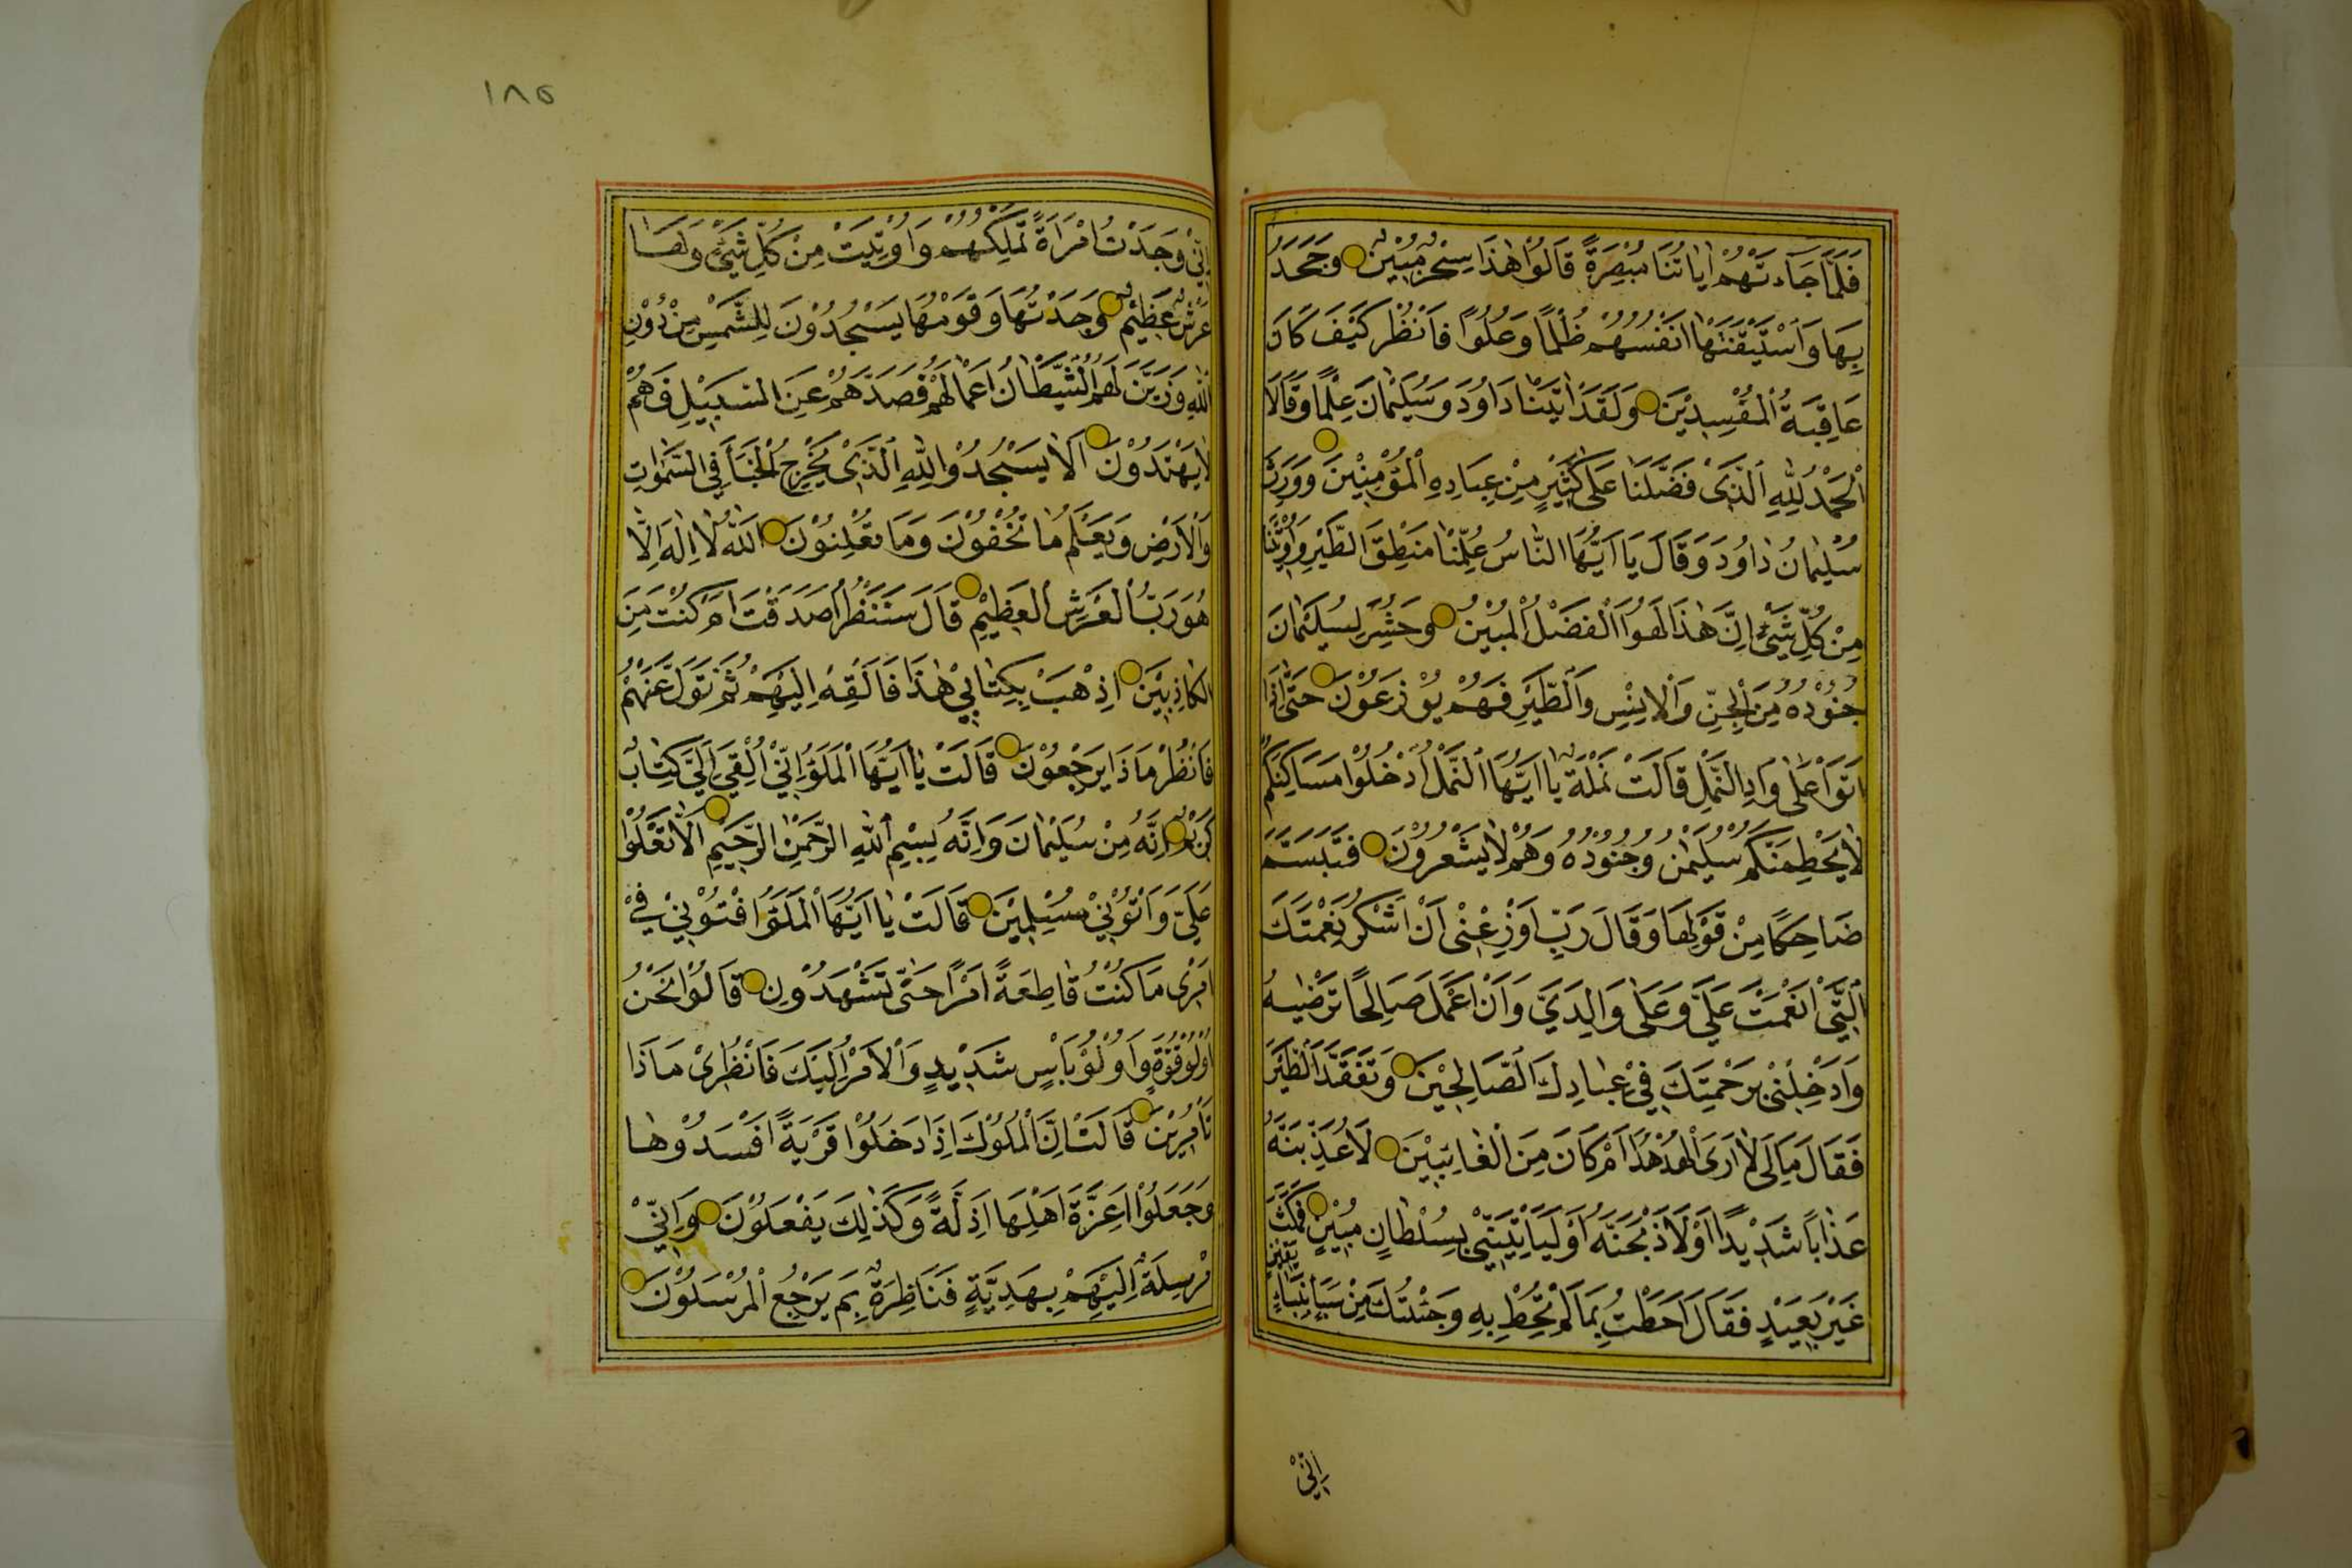 فَلَمَّا جَاءَتْهُمْ اٰيَاتُنَا مُبْصِرَةً قَالُوْا هٰذَا سِحْرٌ مُبِيْنٌ وَجَحَدُ
بِهَا وَاسْتَيْقَنَتْهَا اَنْفُسُهُمْ ظُلْمًا وَعُلُوًّا فَانْظُرْ كَيْفَ كَانَ
عَاقِبَةُ الْمُفْسِدِيْنَ وَلَقَدْ اٰتَيْنَا دَاوُدَ وَسُلَيْمٰانَ عِلْمًا وَقَالَا
الْحَمْدُ لِلّٰهِ الَّذِىْ فَضَّلَنَا عَلٰى كَثِيْرٍ مِنْ عِبَادِهِ الْمُؤْمِنِيْنَ وَوَرِثَ
سُلَيْمٰانُ دٰاوُدَ وَقَالَ يَا اَيُّهَا النَّاسُ عُلِّمْنَا مَنْطِقَ الطَّيْرِ وَاُوْتِيْنَا
مِنْ كُلِّ شَيْءٍ اِنَّ هٰذَا لَهُوَ الْفَضْلُ الْمُبِيْنُ وَحُشِرَ لِسُلَيْمٰانَ
جُنُوْدُهُ مِنَ الْجِنِّ وَالْاِنْسِ وَالطَّيْرِ فَهُمْ يُوْزَعُوْنَ حَتّٰى اِذَا
اَتَوْا عَلٰى وَادِ النَّمْلِ قَالَتْ نَمْلَةٌ يٰا اَيُّهَا النَّمْلُ ادْخُلُوْا مَسَاكِنَكُمْ
لَا يَحْطِمَنَّكُمْ سُلَيْمٰنُ وَجُنُوْدُهُ وَهُمْ لَا يَشْعُرُوْنَ فَتَبَسَّمَ
ضَاحِكًا مِنْ قَوْلِهَا وَقَالَ رَبِّ اَوْزِعْنِىْ اَنْ اَشْكُرَ نِعْمَتَكَ
الَّتِىْ اَنْعَمْتَ عَلَيَّ وَعَلٰى وَالِدَيَّ وَاَنْ اَعْمَلَ صَالِحًا تَرْضٰيهُ
وَاَدْخِلْنِىْ بِرَحْمَتِكَ فِيْ عِبٰادِكَ الصَّالِحِيْنَ وَتَفَقَّدَ الطَّيْرَ
فَقَالَ مَا لِىَ لَا اَرَى الْهُدْهُدَ اَمْ كَانَ مِنَ الْغَائِبِيْنَ لَاُعَذِّبَنَّهُ
عَذَابًا شَدِيْدًا اَوْ لَاَذْبَحَنَّهُ اَوْ لَيَاْتِيَنِّيْ بِسُلْطَانٍ مُبِيْنٍ فَمَكَثَ
غَيْرَ بَعِيْدٍ فَقَالَ اَحَطْتُ بِمَا لَمْ تُحِطْ بِهِ وَجِئْتُكَ مِنْ سَبَاٍ بِنَبَاءٍ يَقِيْنٍ
اِنِّيْ
١٨٥
اِنِّيْ وَجَدْتُ امْرَاَةً تَمْلِكُهُمْ وَاُوْتِيَتْ مِنْ كُلِّ شَيْءٍ وَلَهَا
عَرْشٌ عَظِيْمٌ وَجَدْتُهَا وَقَوْمَهَا يَسْجُدُوْنَ لِلشَّمْسِ مِنْ دُوْنِ
اللّٰهِ وَزَيَّنَ لَهُمُ الشَّيْطَانُ اَعْمَالَهُمْ فَصَدَّهُمْ عَنِ السَّبِيْلِ فَهُمْ
لَا يَهْتَدُوْنَ اَلَّا يَسْجُدُوْا لِلّٰهِ الَّذِىْ يُخْرِجُ الْخَبْاَ فِي السَّمٰوٰاتِ
وَالْاَرْضِ وَيَعْلَمُ مٰا تُخْفُوْنَ وَمَا تُعْلِنُوْنَ اَللّٰهُ لَا اِلٰهَ اِلَّا
هُوَ رَبُّ الْعَرْشِ الْعَظِيْمِ قَالَ سَنَنْظُرُ اَصَدَقْتَ اَمْ كُنْتَ مِنَ
الْكَاذِبِيْنَ اِذْهَبْ بِكِتٰابِيْ هٰذَا فَاَلْقِهْ اِلَيْهِمْ ثُمَّ تَوَلَّ عَنْهُمْ
فَانْظُرْ مَاذَا يَرْجِعُوْنَ قَالَتْ يٰا اَيُّهَا الْمَلَؤُا اِنِّيْ اُلْقِيَ اِلَيَّ كِتٰابٌ
كَرِيْمٌ اِنَّهُ مِنْ سُلَيْمٰانَ وَاِنَّهُ بِسْمِ اللّٰهِ الرَّحْمٰنِ الرَّحِيْمِ اَلَّا تَعْلُوْا
عَلَيَّ وَاْتُوْنِيْ مُسْلِمِيْنَ قَالَتْ يٰا اَيُّهَا الْمَلَؤُا اَفْتُوْنِيْ فِيْ
اَمْرِى مَا كُنْتُ قَاطِعَةً اَمْرًا حَتّٰى تَشْهَدُوْنِ قَالُوْا نَحْنُ
اُولُوْ قُوَّةٍ وَاُولُوْ بَاْسٍ شَدِيْدٍ وَالْاَمْرُ اِلَيْكَ فَانْظُرِىْ مَاذَا
تَاْمُرِيْنَ قَالَتْ اِنَّ الْمُلُوْكَ اِذَا دَخَلُوْا قَرْيَةً اَفْسَدُوْهٰا
وَجَعَلُوْا اَعِزَّةَ اَهْلِهَا اَذِلَّةً وَكَذٰلِكَ يَفْعَلُوْنَ وَاِنِّيْ
مُرْسِلَةٌ اِلَيْهِمْ بِهَدِيَّةٍ فَنَاظِرَةٌ بِمَ يَرْجِعُ الْمُرْسَلُوْنَ